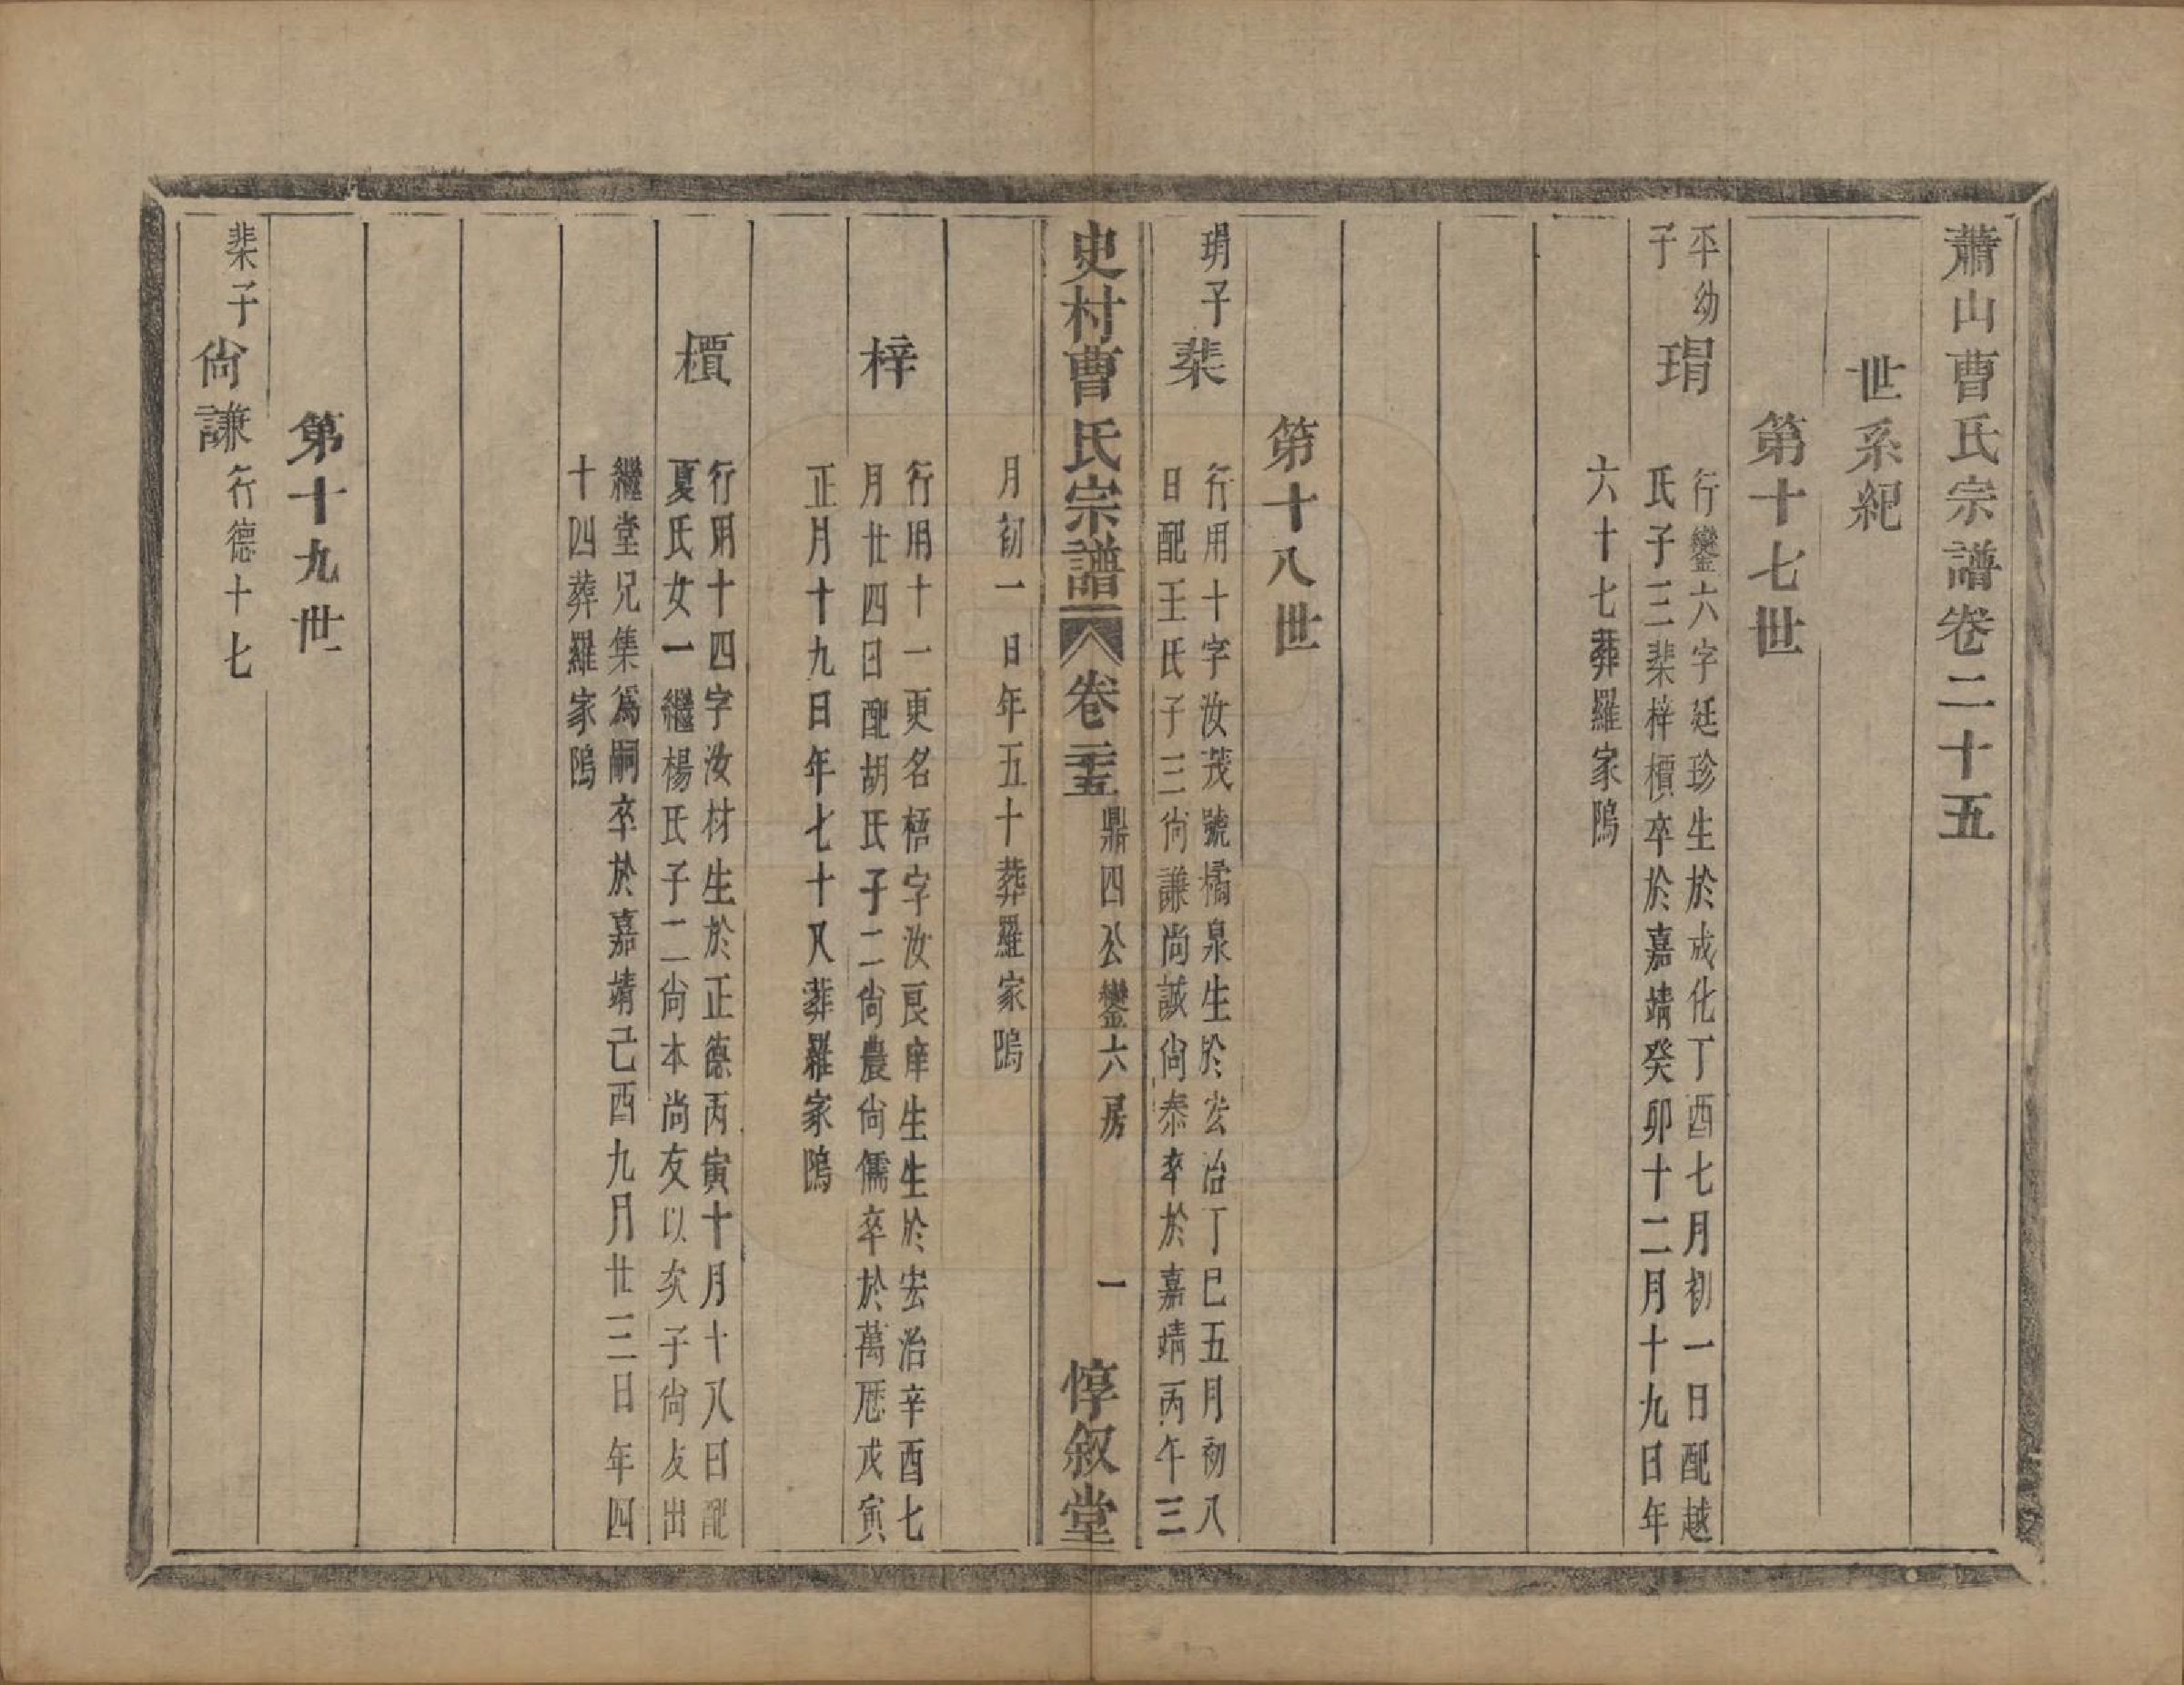 蕭山曹氏宗譜卷二十五
世系紀
第十七世
平幼
子
瑁
行鑾六字廷珍生於成化丁酉七月初一日配越
氏子三棐梓檟卒於嘉靖癸卯十二月十九日年
六十七葬羅家隖
第十八世
瑁子
棐
行用十字汝茂號橘泉生於宏治丁巳五月初八
日配王氏子三尙謙尚誠尙泰卒於嘉靖丙午三
史村曹氏宗譜
卷二十五
鼎四公鑾六房
一
惇敘堂
月初一日年五十葬羅家隖
梓
行用十一更名梧字汝良庠生生於宏治辛酉七
月廿四日配胡氏子二尙農尙儒卒於萬厯戊寅
正月十九日年七十八葬羅家隖
檟
行用十四字汝材生於正德丙寅十月十八日配
夏氏女一繼楊氏子二尙本尚友以次子尙友出
繼堂兄集爲嗣卒於嘉靖己酉九月廿三日年四
十四葬羅家隖
第十九世
棐子
尙謙
行德十七